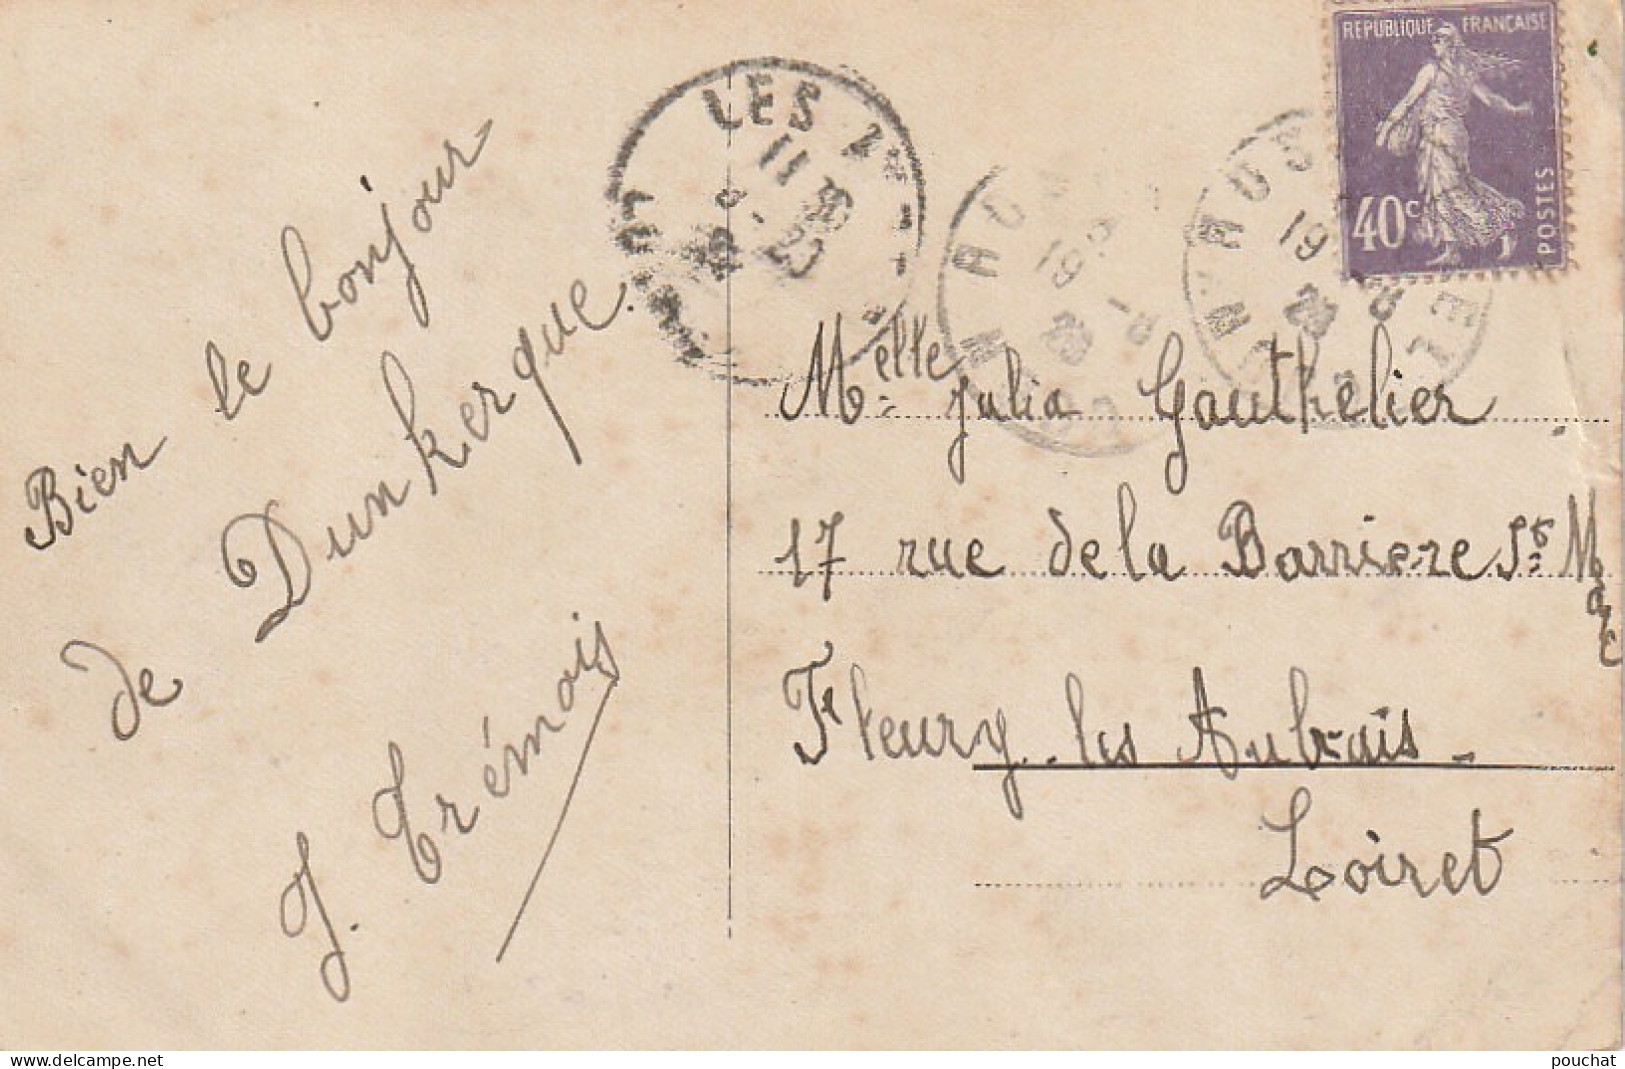 Bien le bonjour
de Dunkerque.
J. Trémois
RÉPUBLIQUE FRANÇAISE
40c
POSTES
LES
11
Melle Julia Gauthelier
17 rue de la Barrière St Marc
Fleury-les Aubrais
Loiret
www.delcampe.net
pouchat